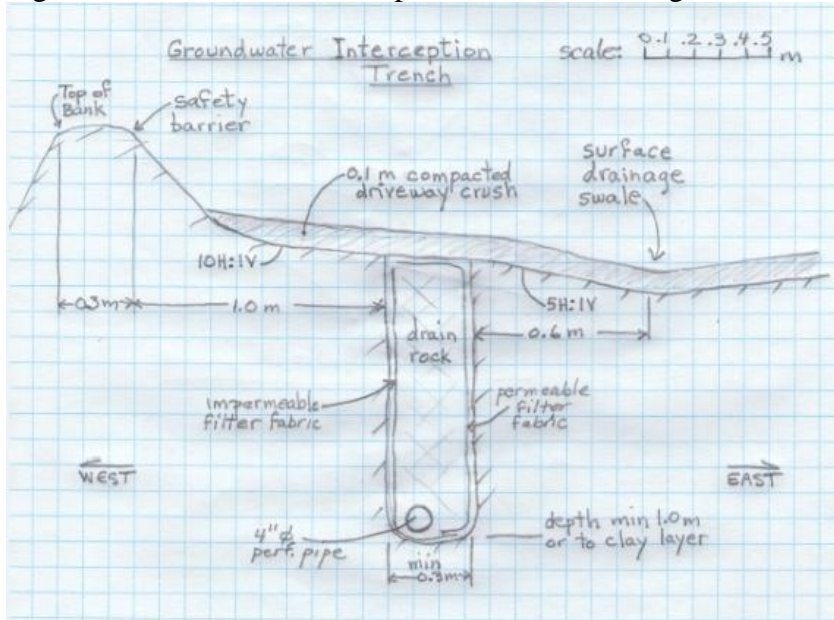 Groundwater Interception
Trench
scale: 0 .1 .2 .3 .4 .5 m
Top of
Bank
safety
barrier
0.1 m compacted
driveway crush
surface
drainage
swale
10H:1V
5H:1V
0.3m
1.0 m
0.6 m
drain
rock
impermeable
filter fabric
permeable
filter
fabric
WEST
EAST
4"ø
perf. pipe
depth min 1.0m
or to clay layer
min
0.3m